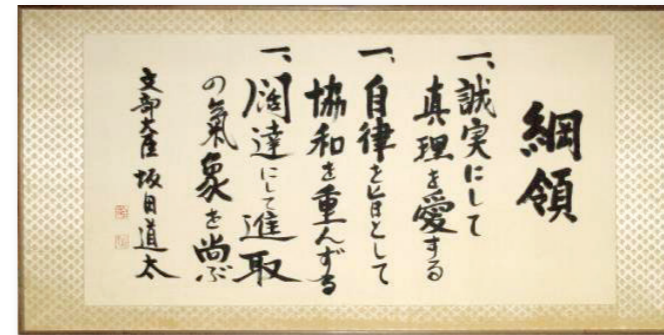 綱領
一、誠実にして
真理を愛する
一、自律を旨として
協和を重んずる
一、闊達にして進取
の氣象を尚ぶ
文部大臣 坂田道太